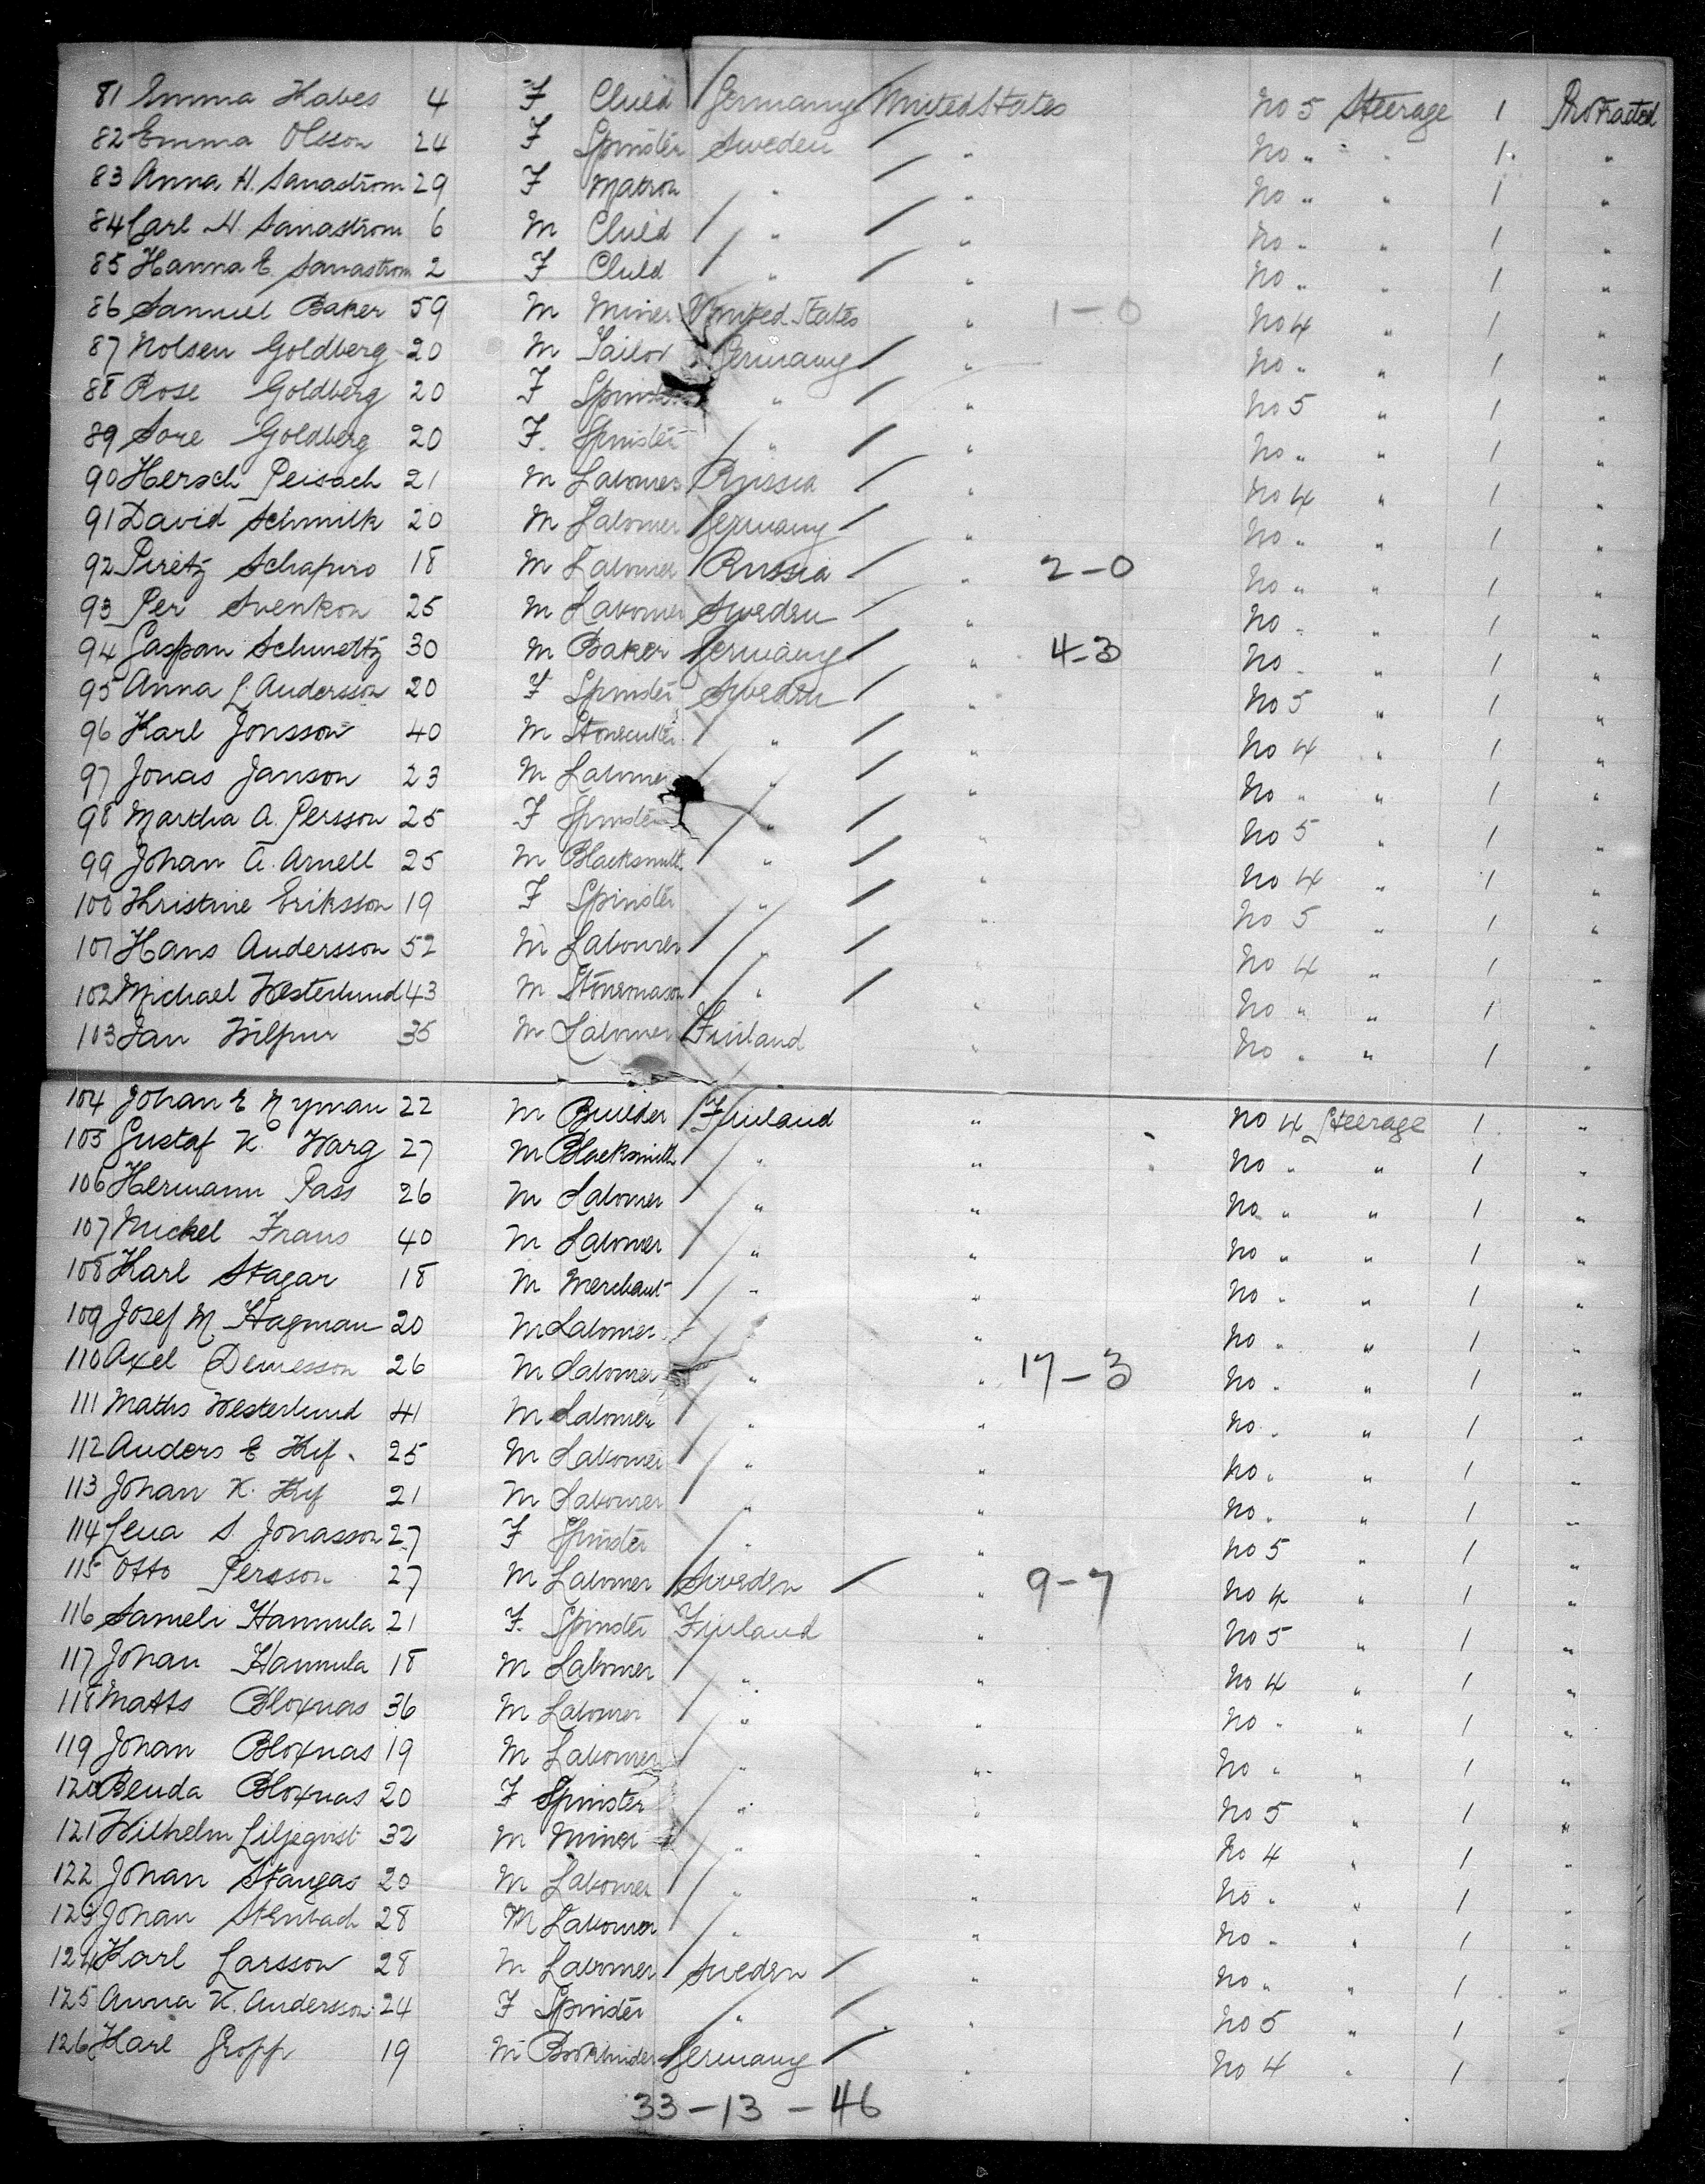 81 Emma Habes 4 F Child Germany United States No 5 Steerage 1 Protracted
82 Emma Olsson 24 F Spinster Sweden " No " " 1 "
83 Anna H. Sanastrom 29 F Matron " " No " " 1 "
84 Carl H. Sanastrom 6 M Child " " No " " 1 "
85 Hanna E. Sanastrom 2 F Child " " No " " 1 "
86 Samuel Baker 59 M Miner United States " 1-0 No 4 " 1 "
87 Nolsen Goldberg 20 M Tailor Germany " No " " 1 "
88 Rose Goldberg 20 F Spinster " " No 5 " 1 "
89 Sore Goldberg 20 F. Spinster " " No " " 1 "
90 Hersch Peisach 21 M Labourer Russia " No 4 " 1 "
91 David Schmilk 20 M Labourer Germany " No " " 1 "
92 Piretz Schapiro 18 M Labourer Russia " 2-0 No " " 1 "
93 Per Svenkon 25 M Labourer Sweden " No " " 1 "
94 Gaspan Schmeltz 30 M Baker Germany " 4-3 No " " 1 "
95 Anna L. Andersson 20 F Spinster Sweden " No 5 " 1 "
96 Karl Jonsson 40 M Stonecutter " " No 4 " 1 "
97 Jonas Janson 23 M Labourer " " No " " 1 "
98 Martha A. Persson 25 F Spinster " " No 5 " 1 "
99 Johan A. Arnell 25 M Blacksmith " " No 4 " 1 "
100 Kristine Eriksson 19 F Spinster " " No 5 " 1 "
101 Hans Andersson 52 M Labourer " " No 4 " 1 "
102 Michael Westerlund 43 M Stonemason " " No " " 1 "
103 Jan Wilpur 35 M Labourer Finland " No " " 1 "
104 Johan E Nyman 22 M Builder Finland " No 4 Steerage 1 "
105 Gustaf K. Warg 27 M Blacksmith " " No " " 1 "
106 Hermann Pass 26 M Labourer " " No " " 1 "
107 Mickel Frans 40 M Labourer " " No " " 1 "
108 Karl Stagar 18 M Merchant " " No " " 1 "
109 Josef M Hagman 20 M Labourer " " No " " 1 "
110 Axel Denesson 26 M Labourer " " 17-3 No " " 1 "
111 Maths Westerlund 41 M Labourer " " No " " 1 "
112 Anders E Kif 25 M Labourer " " No " " 1 "
113 Johan K. Kif 21 M Labourer " " No " " 1 "
114 Lena S. Jonasson 27 F Spinster " " No 5 " 1 "
115 Otto Persson 27 M Labourer Sweden " 9-7 No 4 " 1 "
116 Sameli Hannula 21 F. Spinster Finland " No 5 " 1 "
117 Johan Hannula 18 M Labourer " " No 4 " 1 "
118 Matts Bloxnas 36 M Labourer " " No " " 1 "
119 Johan Bloxnas 19 M Labourer " " No " " 1 "
120 Benda Bloxnas 20 F Spinster " " No 5 " 1 "
121 Wilhelm Liljeqvist 32 M Miner " " No 4 " 1 "
122 Johan Stangas 20 M Labourer " " No " " 1 "
123 Johan Stenbach 28 M Labourer " " No " " 1 "
124 Karl Larsson 28 M Labourer Sweden " No " " 1 "
125 Anna K. Andersson 24 F Spinster " " No 5 " 1 "
126 Karl Gropp 19 M Bookbinder Germany " No 4 " 1 "
33-13-46